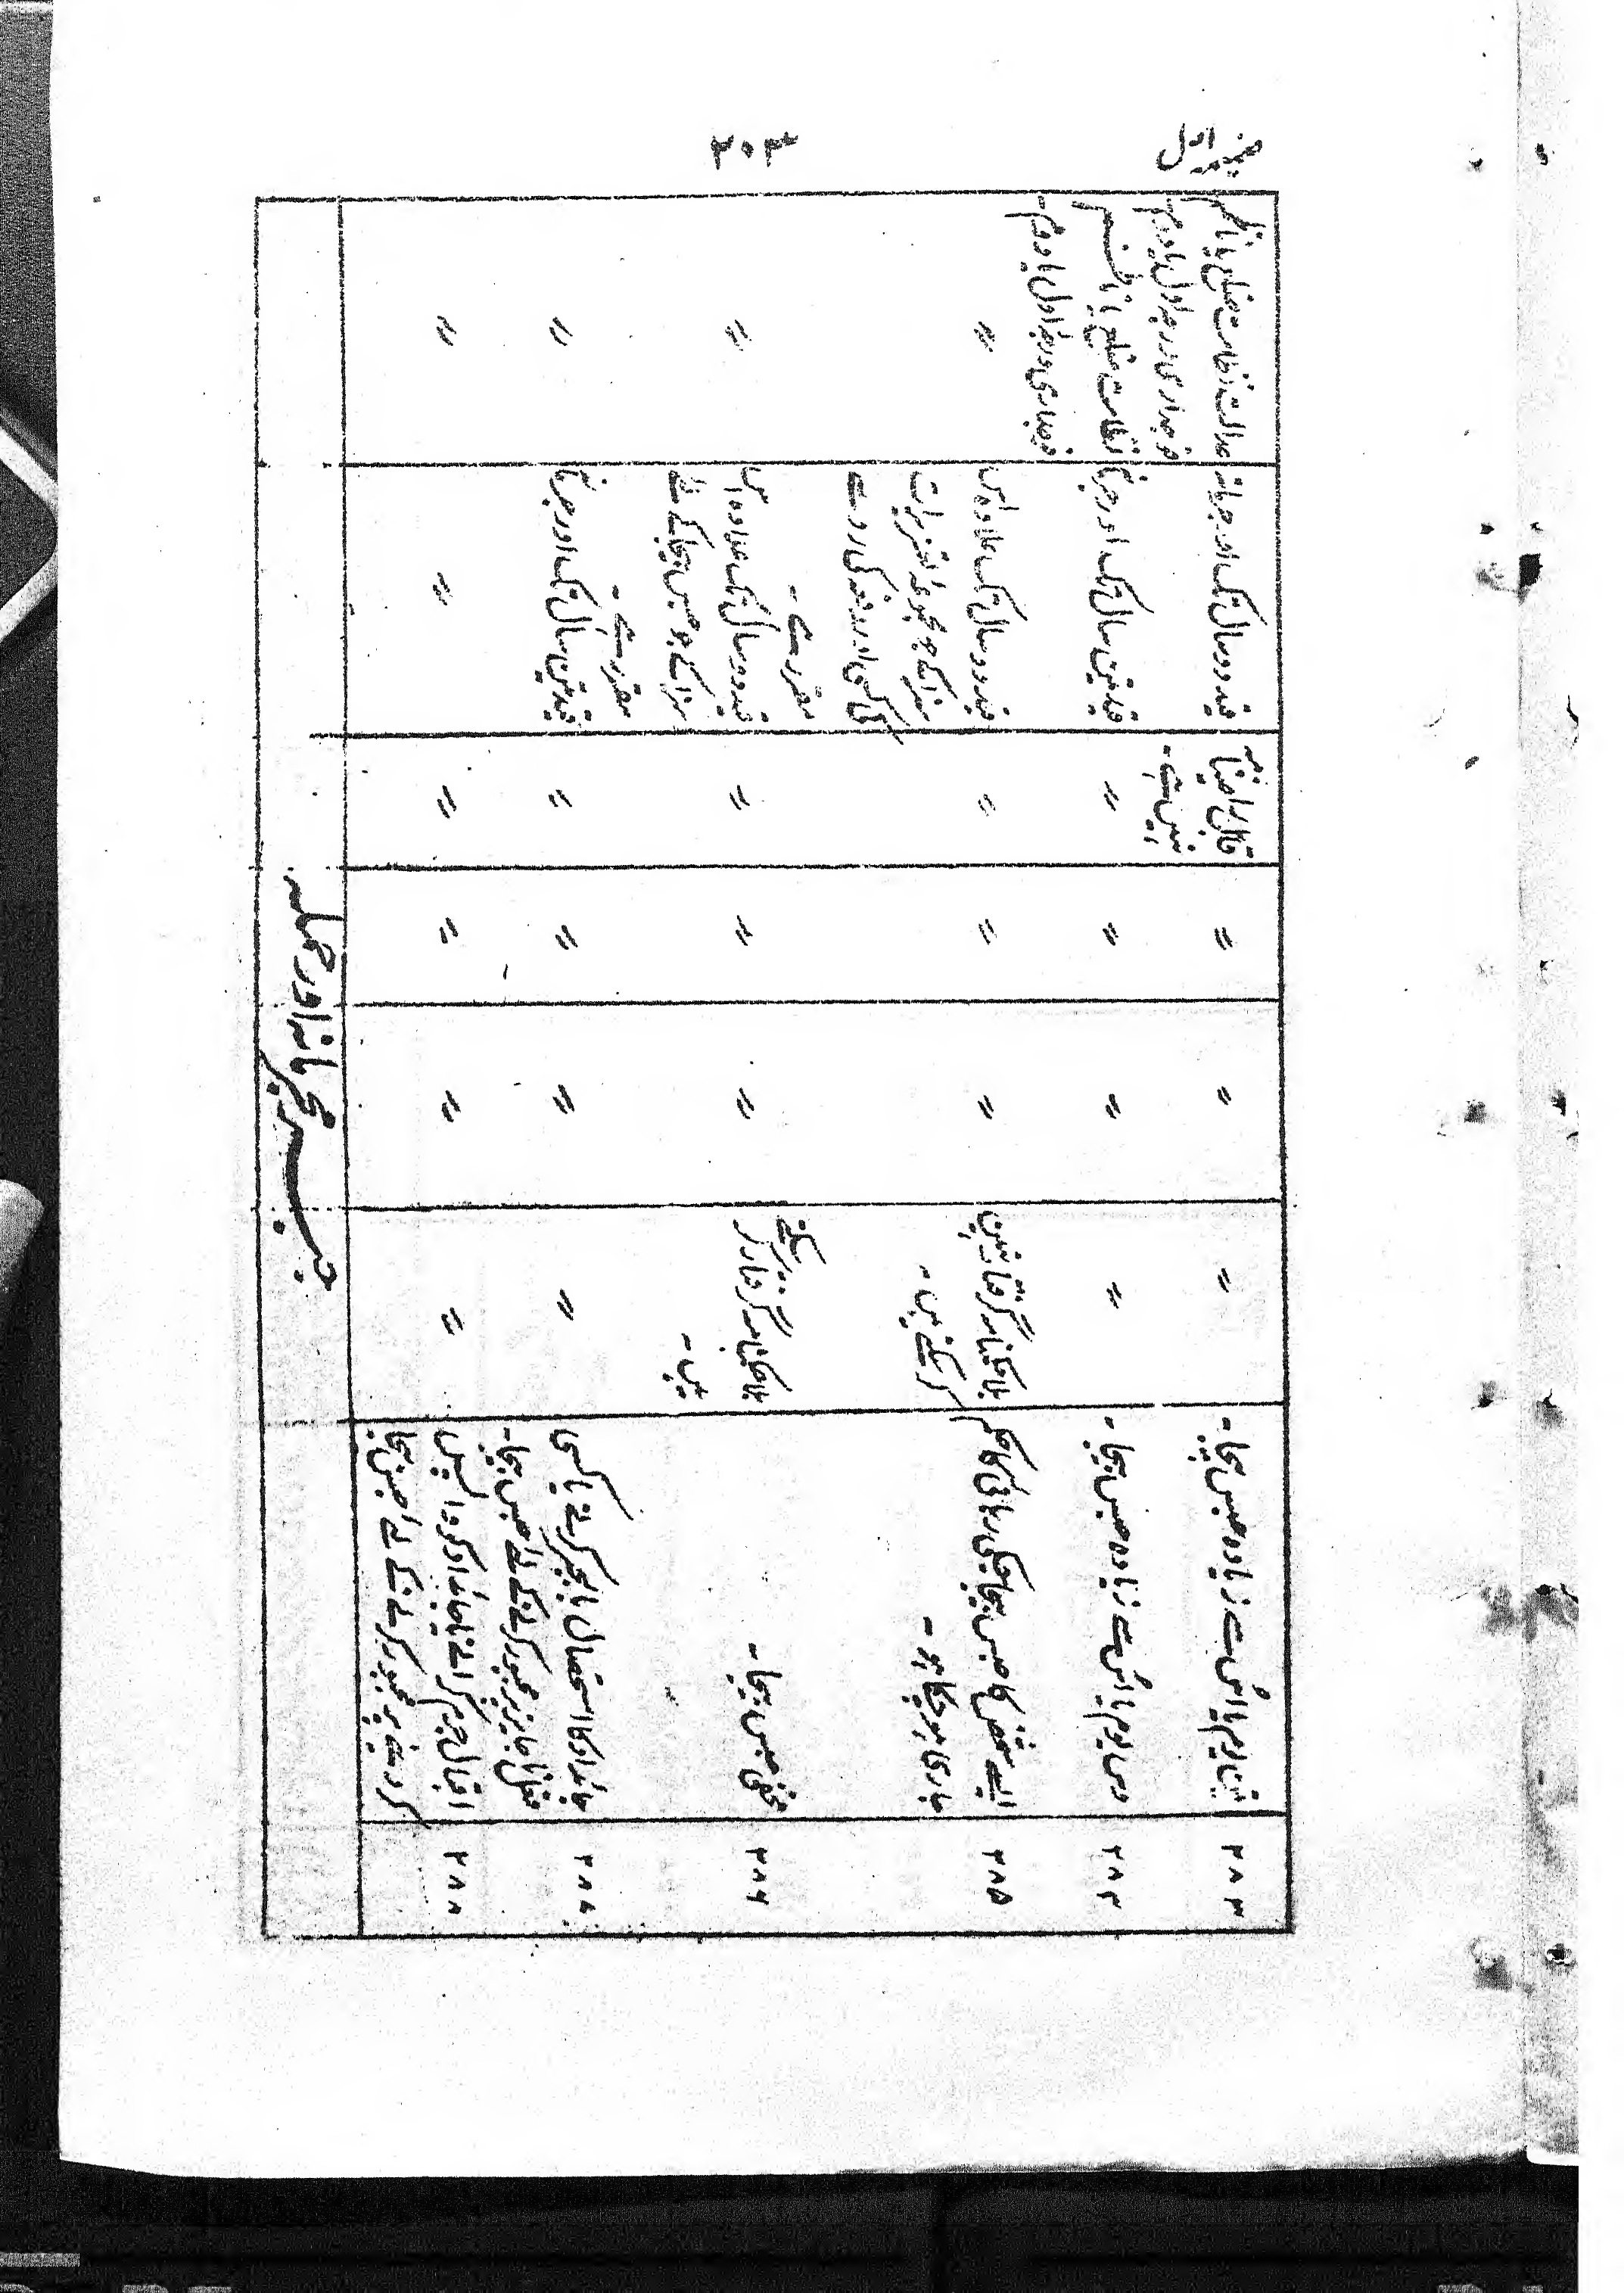 ضمیمہ اول
۳۰۳
۲۸۳
تین یوم یا اُس سے زیادہ حبس بیجا۔
〃
〃
〃
قابل راضینامہ
نہیں ہے۔
قید دو سال تک اور جرمانہ
عدالت نظامت ضلع یا ناظم
فوجداری درجہ اول یا دوم۔
۲۸۴
دس یوم یا اُس سے زیادہ حبس بیجا۔
〃
〃
〃
〃
قید تین سال تک اور جرمانہ
نظامت ضلع یا ناظم
فوجداری درجہ اول یا دوم۔
۲۸۵
ایسے شخص کا حبس بیجا جسکی رہائی کا حکم
جاری ہو چکا ہو۔
بلا حکمنامہ گرفتار نہیں
کر سکتے ہیں۔
〃
〃
〃
قید دو سال تک علاوہ اس
سزا کے جو مجموعہ تعزیرات
کی کسی اور دفعہ کی رو سے
مقرر ہے۔
〃
۲۸۶
مخفی حبس بیجا۔
بلا حکمنامہ گرفتار کر سکتے
ہیں۔
〃
〃
〃
قید دو سال تک علاوہ اس
سزا کے جو حبس بیجا کے لئے
مقرر ہے۔
〃
۲۸۷
جائداد کا استحصال بالجبر کرنے یا کسی
فعل ناجایز پر مجبور کرنے کے لئے حبس بیجا۔
〃
〃
〃
〃
قید تین سال تک اور جرمانہ
〃
۲۸۸
اقبال جرم کرانے یا جائداد کو واپس
کر دینے پر مجبور کرنے کے لئے حبس بیجا
〃
〃
〃
〃
〃
〃
جبر مجرمانہ اور حملہ